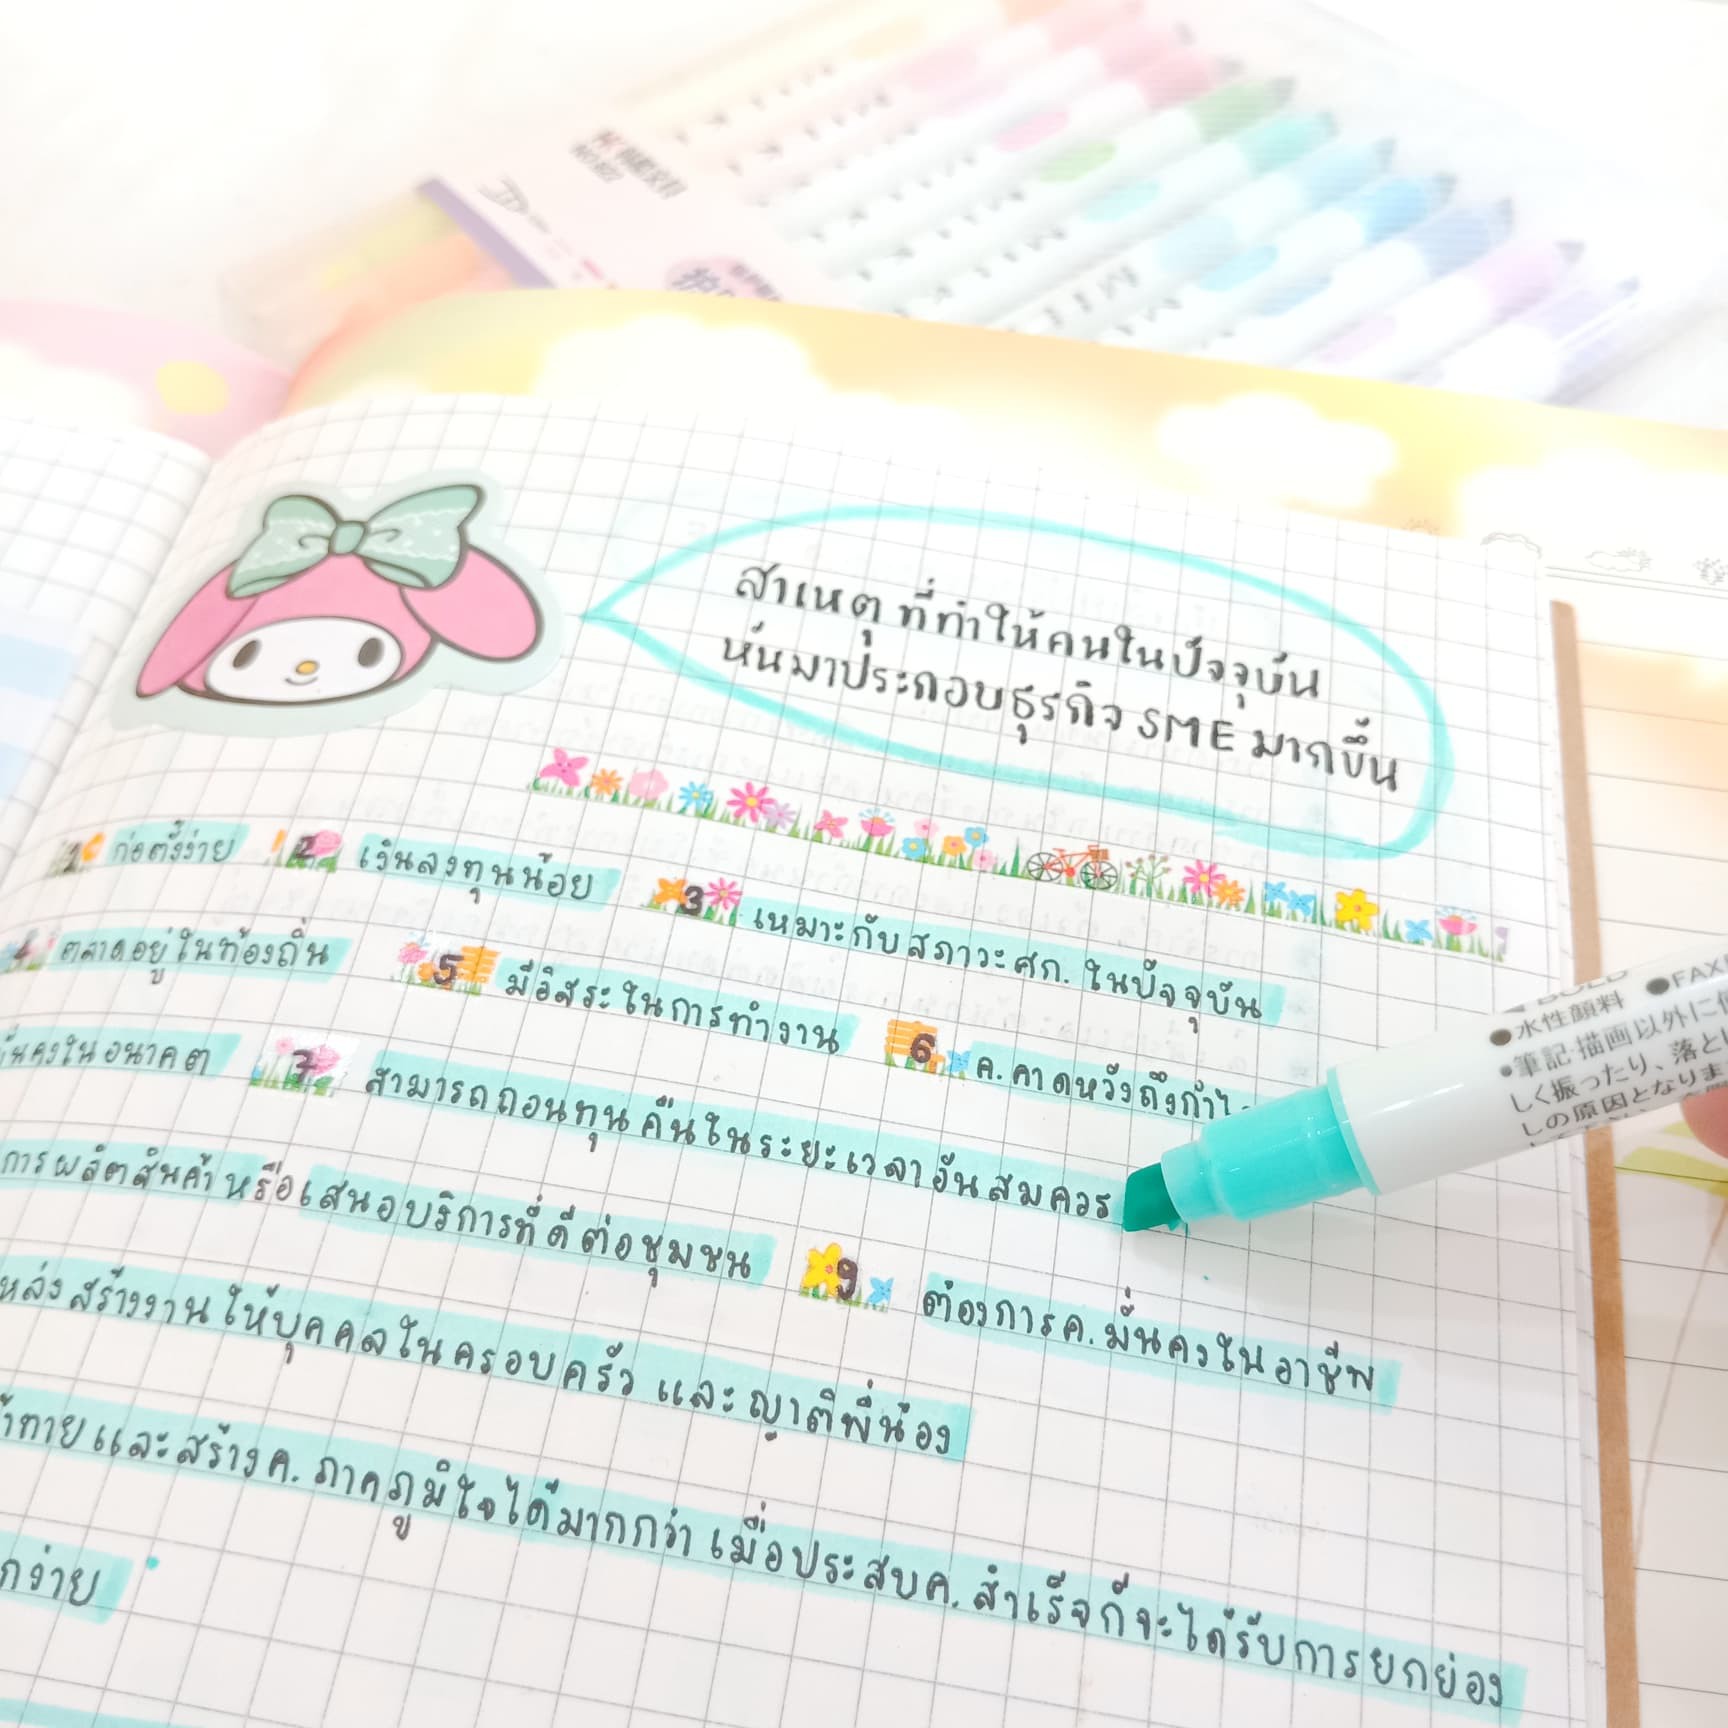 สาเหตุ ที่ทำให้คนในปัจจุบัน
หันมาประกอบธุรกิจ SME มากขึ้น
1 ก่อตั้งง่าย 2 เงินลงทุนน้อย 3 เหมาะกับสภาวะศก. ในปัจจุบัน
4 ตลาดอยู่ในท้องถิ่น 5 มีอิสระในการทำงาน 6 ค.คาดหวังถึงกำไ
นคงในอนาคต 7 สามารถถอนทุนคืนในระยะเวลาอันสมควร
การผลิตสินค้าหรือเสนอบริการที่ดีต่อชุมชน 9 ต้องการค.มั่นคงในอาชีพ
หล่งสร้างงานให้บุคคลในครอบครัว และญาติพี่น้อง
้าทายและสร้างค.ภาคภูมิใจได้มากกว่า เมื่อประสบค.สำเร็จก็จะได้รับการยกย่อง
กง่าย
●水性顔料 ●FAX
●筆記・描画以外に使
しく振ったり、落とし
しの原因となりま